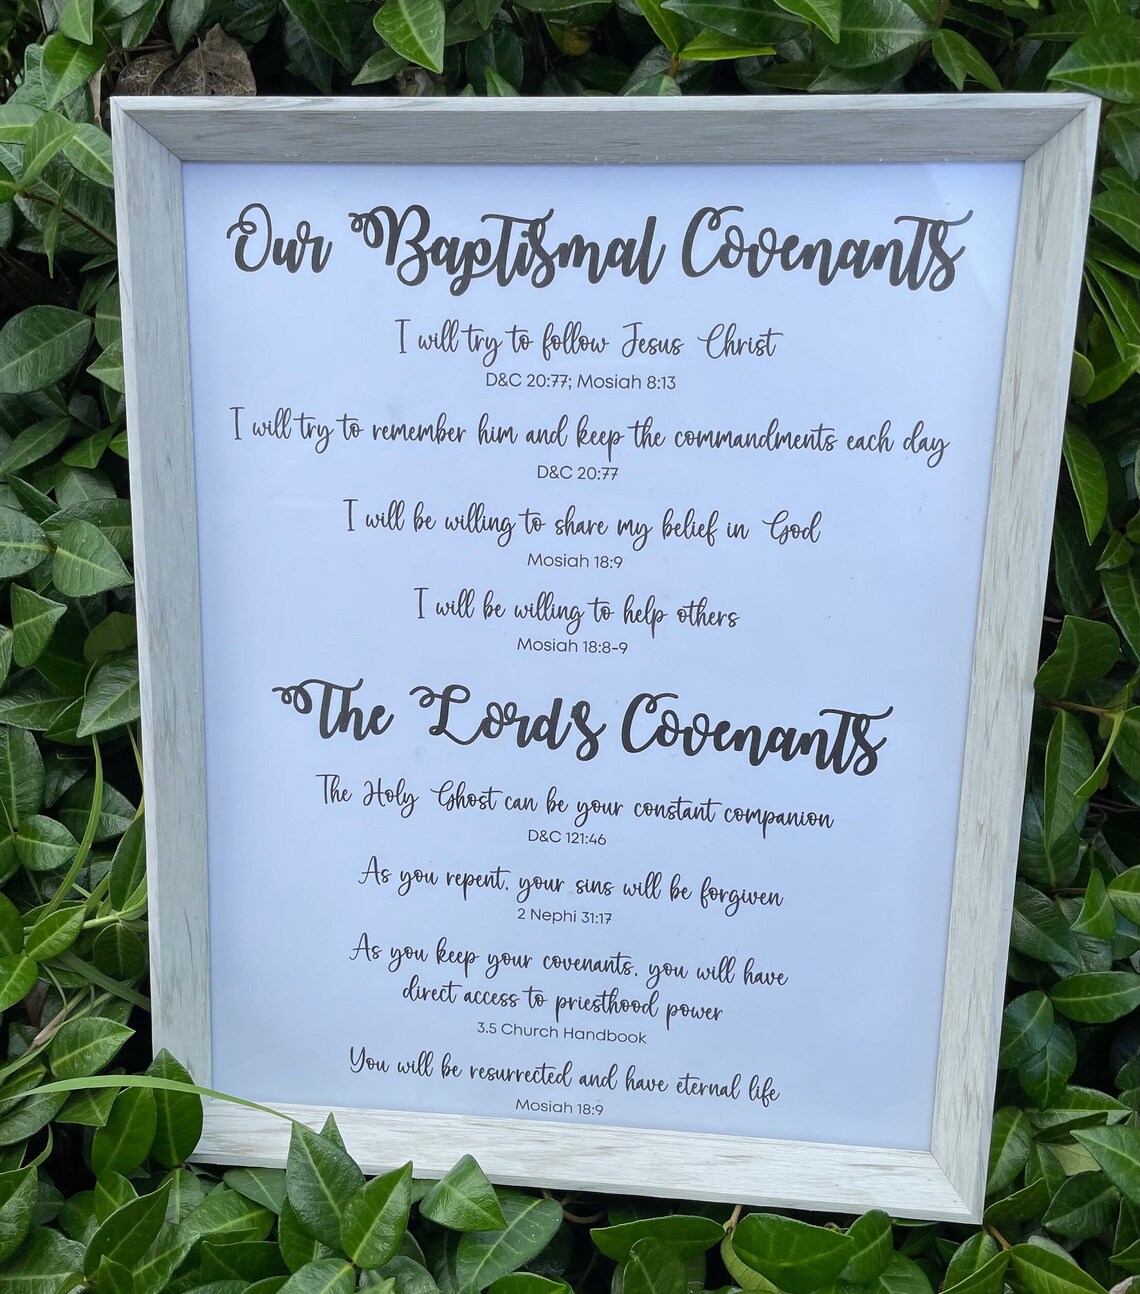 Our Baptismal Covenants
I will try to follow Jesus Christ
D&C 20:77; Mosiah 8:13
I will try to remember him and keep the commandments each day
D&C 20:77
I will be willing to share my belief in God
Mosiah 18:9
I will be willing to help others
Mosiah 18:8-9
The Lord's Covenants
The Holy Ghost can be your constant companion
D&C 121:46
As you repent, your sins will be forgiven
2 Nephi 31:17
As you keep your covenants, you will have
direct access to priesthood power
3.5 Church Handbook
You will be resurrected and have eternal life
Mosiah 18:9